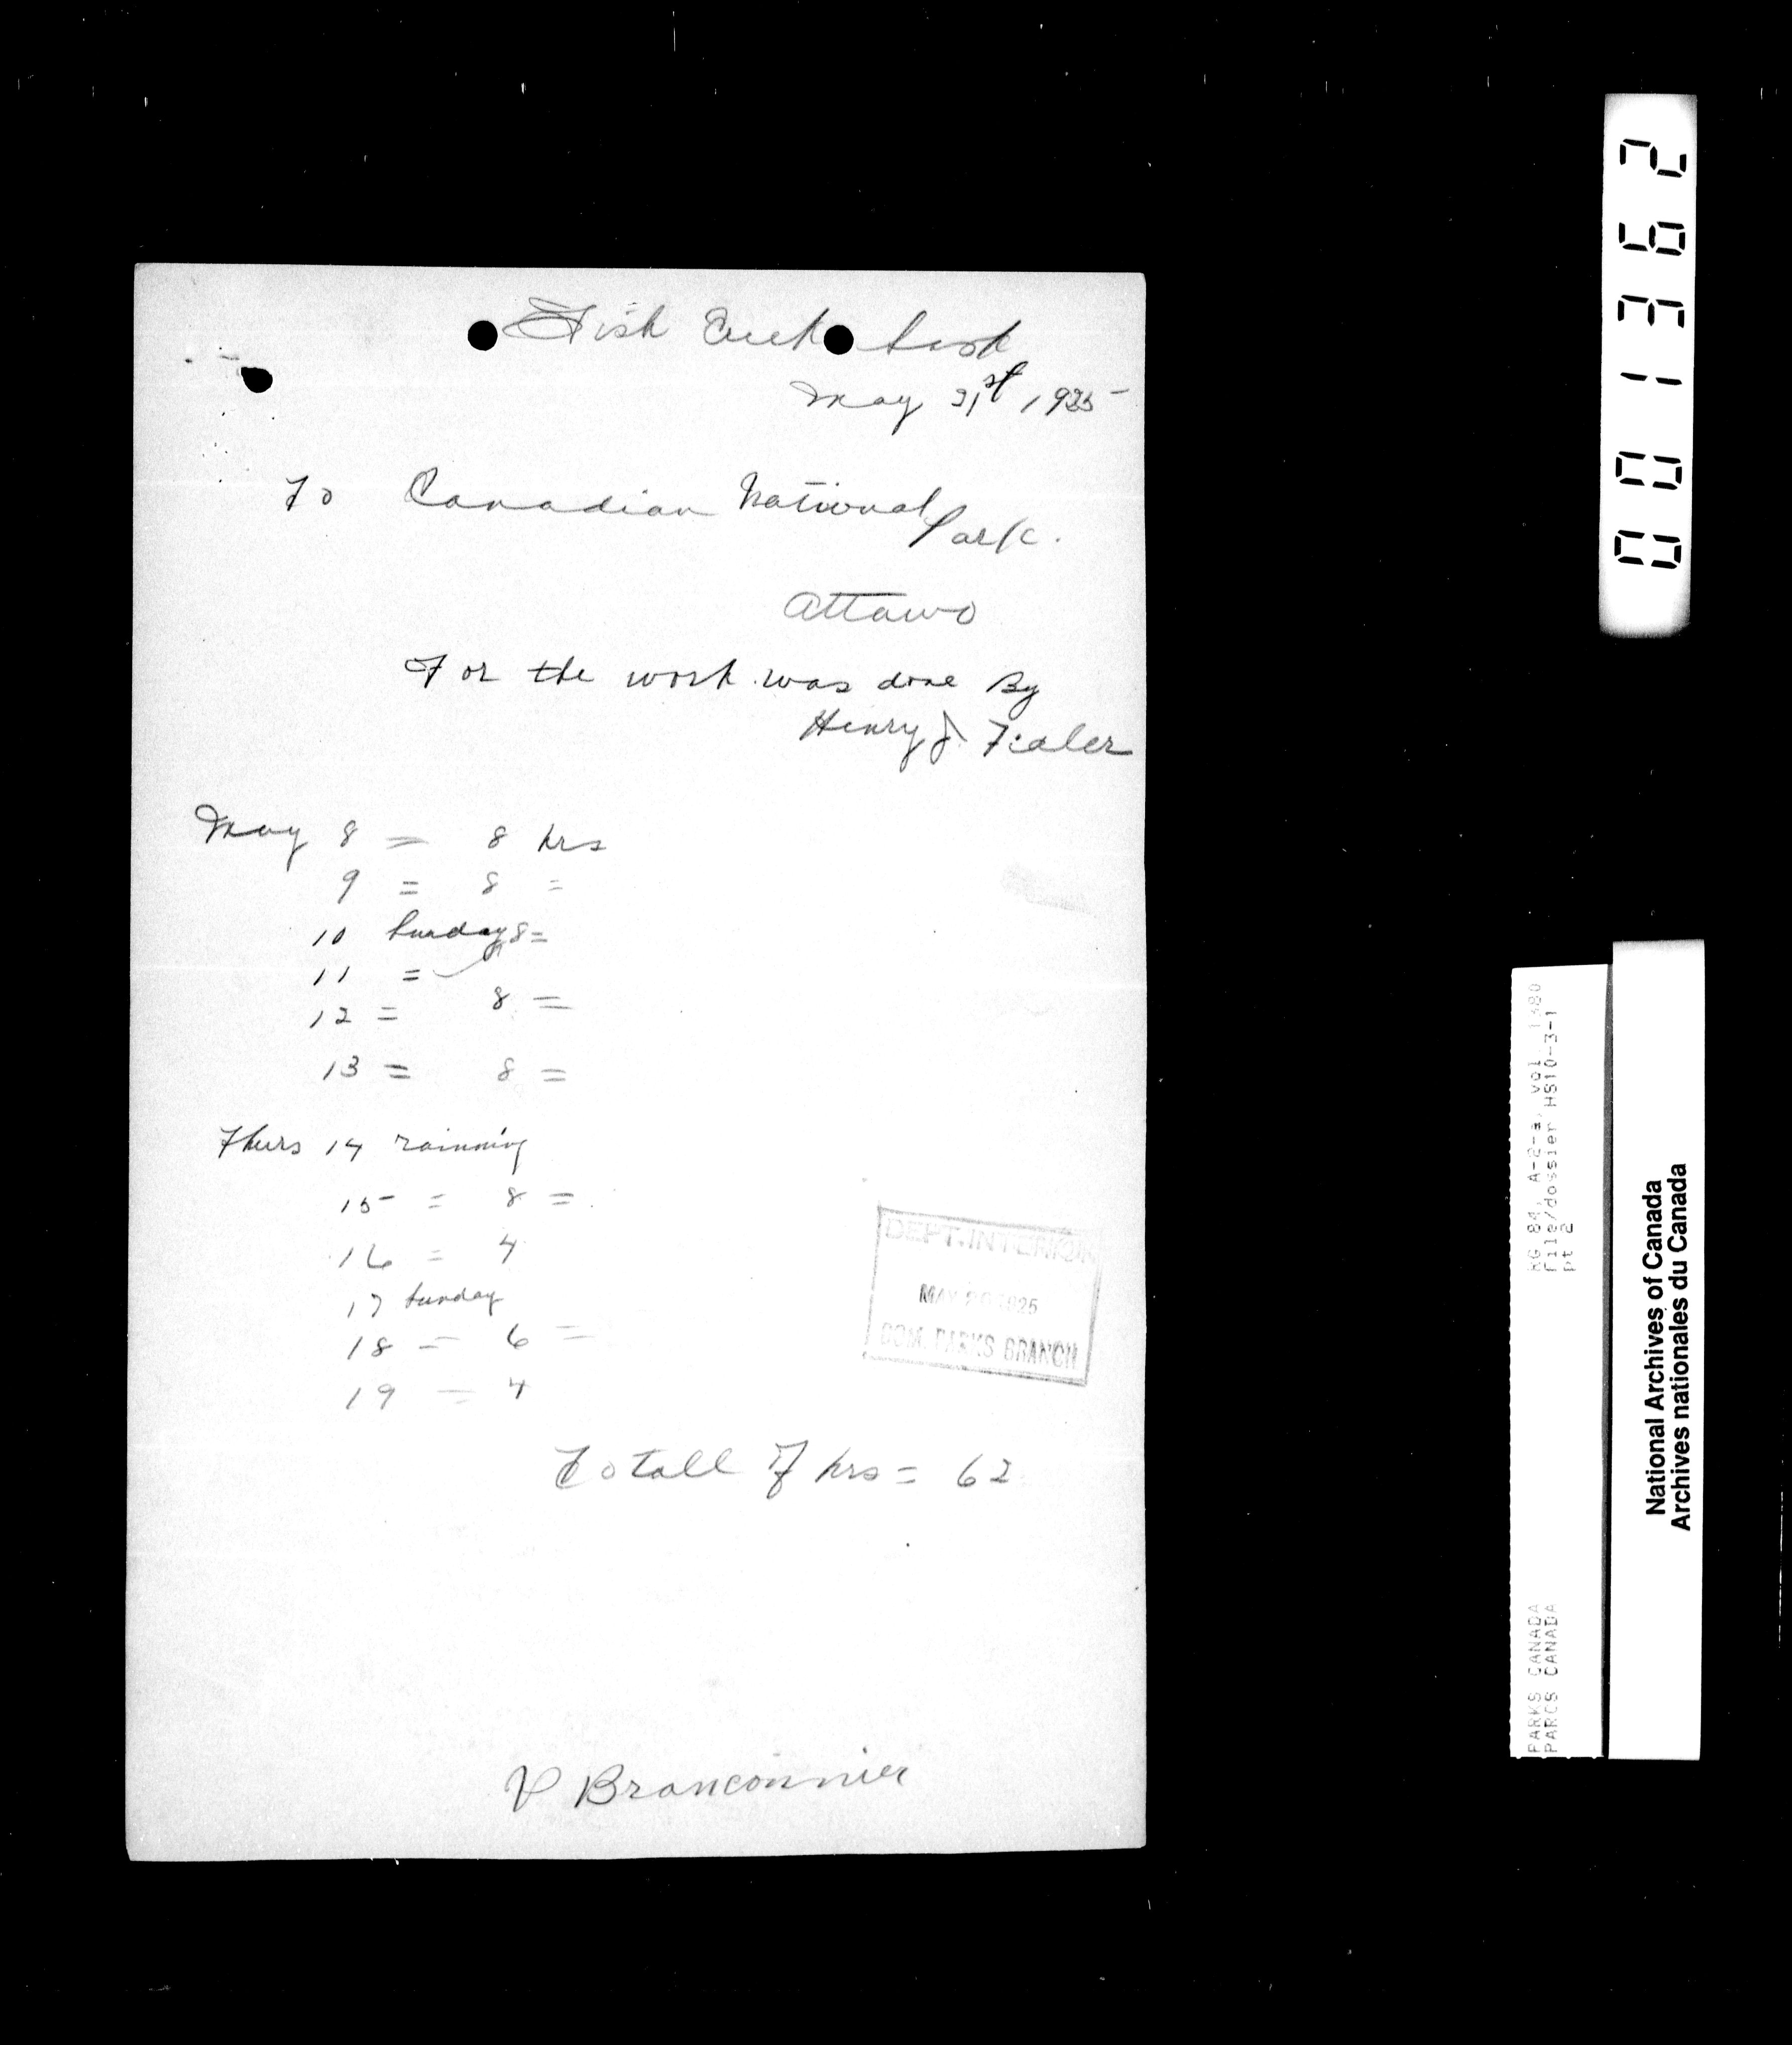 Fish Creek Sask
May 21st, 1925
To Canadian National
Park.
Ottawa
For the work was done By
Henry J. Fidler
May 8 = 8 hrs
9 = 8 =
10 Sunday 8 =
11 =
12 = 8 =
13 = 8 =
Thurs 14 rainning
15 = 8 =
16 = 4
17 Sunday
18 = 6 =
19 = 4
Totall of hrs = 62
DEPT. INTERIOR
MAY 1925
DOM. PARKS BRANCH
P Branconnier
001362
RG 84, A-2-a, vol 1380
File/dossier HS10-3-1
pt 2
PARKS CANADA
PARCS CANADA
National Archives of Canada
Archives nationales du Canada